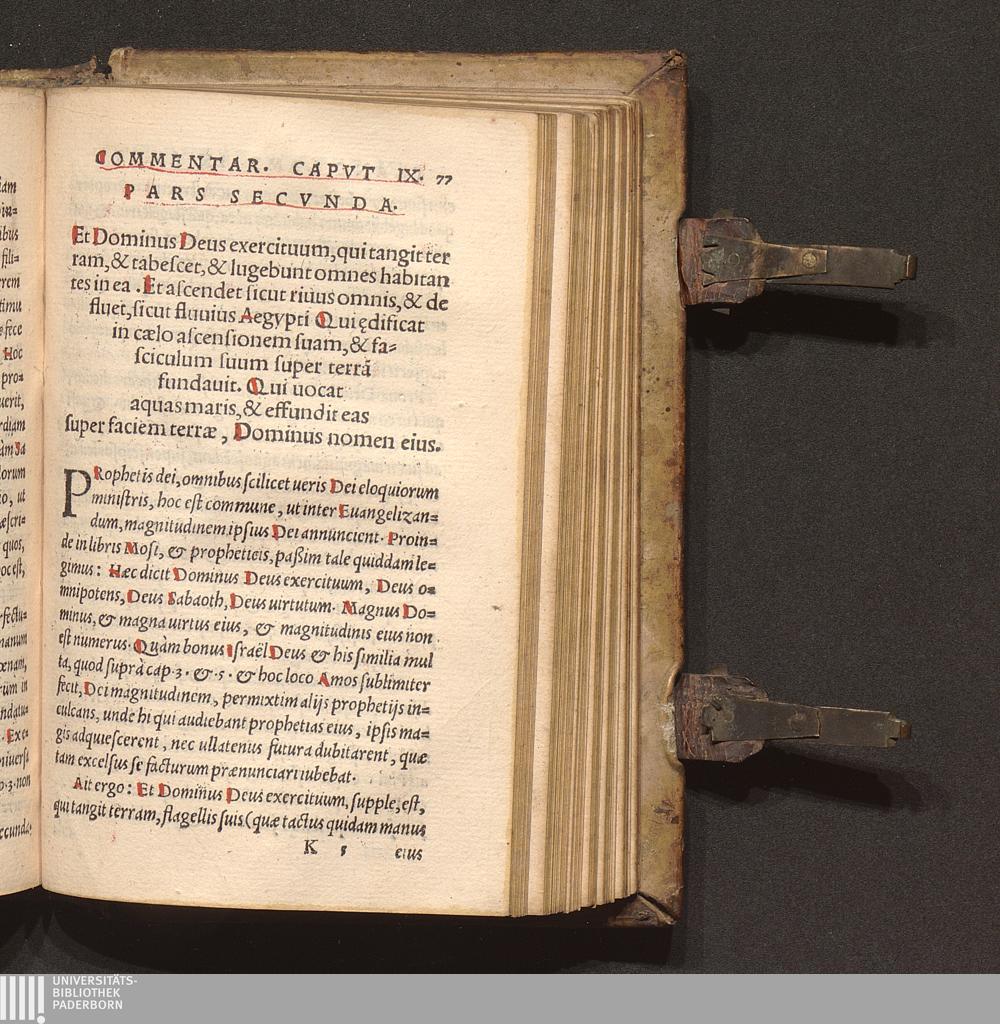 COMMENTAR. CAPVT IX. 77
PARS SECVNDA.
Et Dominus Deus exercituum, qui tangit ter
ram, & tabescet, & lugebunt omnes habitan
tes in ea. Et ascendet sicut riuus omnis, & de
fluet, sicut fluuius Aegypti Qui ędificat
in cælo ascensionem suam, & fa=
sciculum suum super terrã
fundauit. Qui uocat
aquas maris, & effundit eas
super faciem terræ, Dominus nomen eius.
PRophetis dei, omnibus scilicet ueris Dei eloquiorum
ministris, hoc est commune, ut inter Euangelizan=
dum, magnitudinem ipsius Dei annuncient. Proin=
de in libris Mosi, & propheticis, paßim tale quiddam le=
gimus: Hæc dicit Dominus Deus exercituum, Deus o=
mnipotens, Deus Sabaoth, Deus uirtutum. Magnus Do=
minus, & magna uirtus eius, & magnitudinis eius non
est numerus. Quàm bonus Israël Deus & his similia mul
ta, quod suprà cap. 3. & 5. & hoc loco Amos sublimiter
fecit, Dei magnitudinem, permixtim alijs prophetijs in=
culcans, unde hi qui audiebant prophetias eius, ipsis ma=
gis adquiescerent, nec ullatenius futura dubitarent, quæ
tam excelsus se facturum prænunciari iubebat.
Ait ergo: Et Dominus Deus exercituum, supple, est,
qui tangit terram, flagellis suis (quæ tactus quidam manus
K 5 eius
iam
ibus
fili=
rem
timu
fece
Hoc
pro=
uerit,
rdiam
lorum
io, ut
quos,
oc est,
fectu=
manum
rùm in
ndatu=
. Exc=
niuersi
p. 3. non
ecunda
UNIVERSITÄTS-
BIBLIOTHEK
PADERBORN